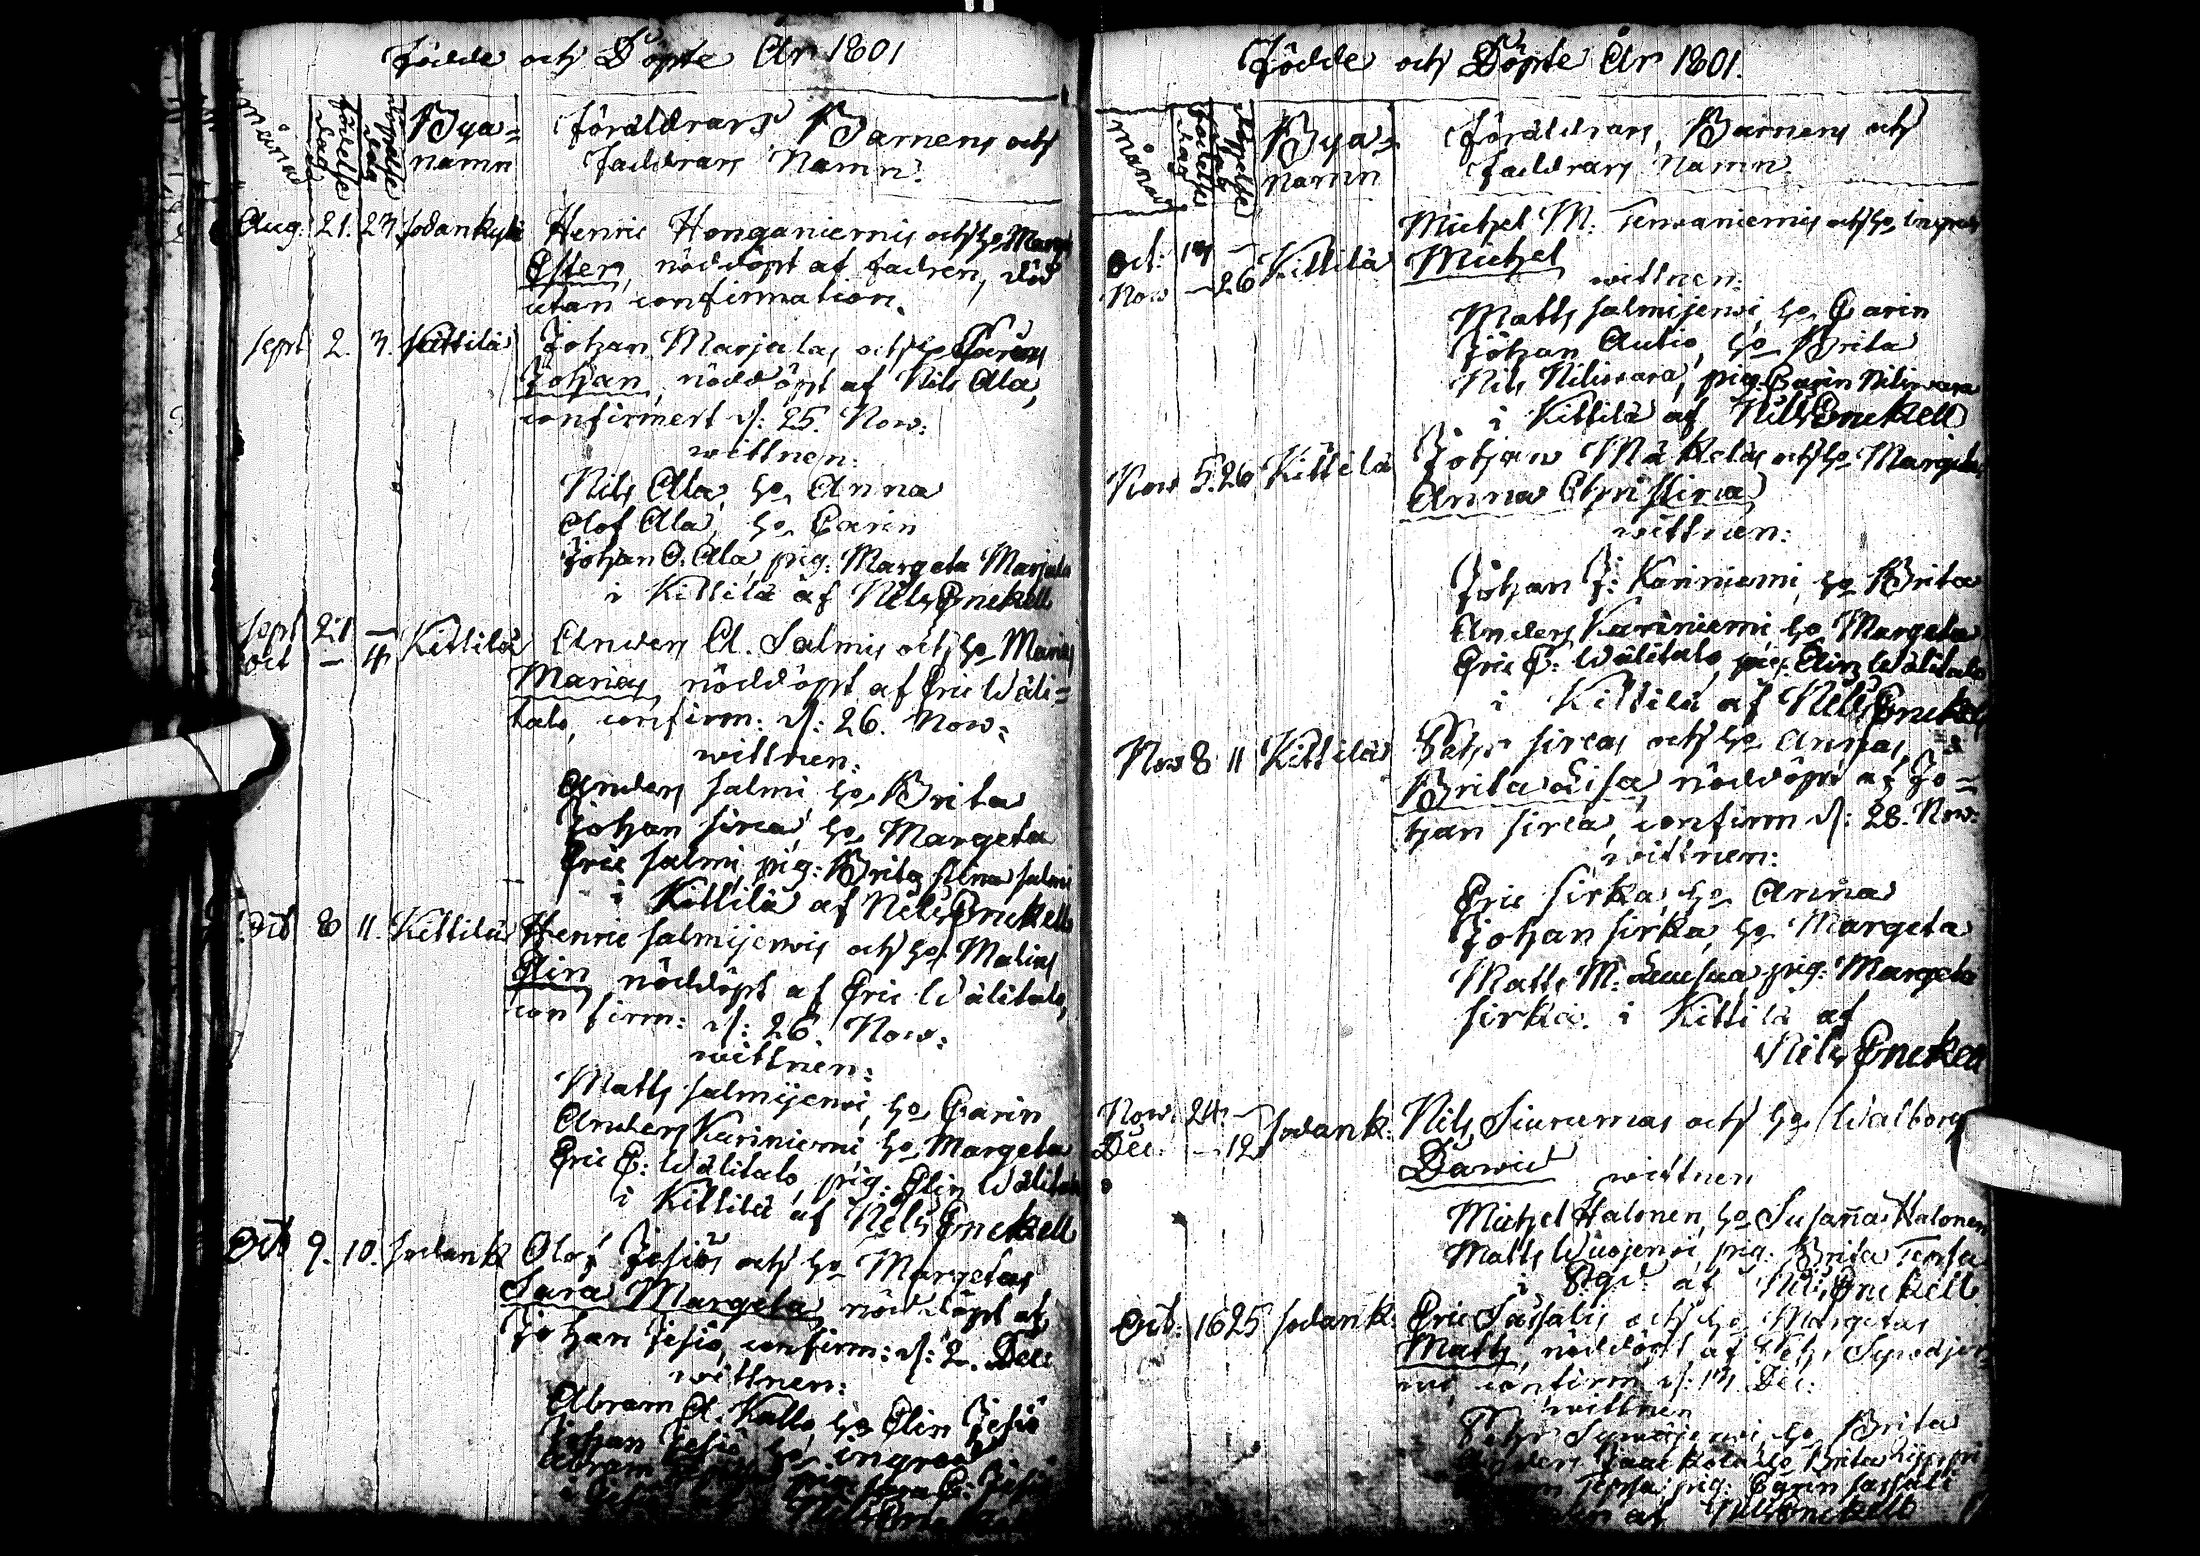 Födde och Döpte År 1801
månad
födelse dag
döpelse dag
Bya=
namn
föräldrars Barnens och
faddrars Namn.
Aug: 21. 23. Sodankylä Henric Honganiemis och ho Marg
Ester, nöddöpt af fadren, död
utan confirmation.
Sept 2. 3. Kittilä Johan Marjalas och ho Carins
Johan, nöddöpt af Nils Ala,
confirmert d: 25. Now:
wittnen:
Nils Ala, ho Anna
Olof Ala, ho Carin
Johan O. Ala, pig: Margeta Marjala
i Kittilä af Nils Enckell
Sept 21 —
Oct — 4 Kittilä Anders A. Salmis och ho Marias
Maria, nöddöpt af Eric Wäli=
talo, confirm: d: 26. Now:
wittnen:
Anders Salmi, ho Brita
Johan Sirca, ho Margeta
Eric Salmi, pig: Brita Stina Salmi
i Kittilä af Nils Enckell
Oct 8 11. Kittilä Henric Salmijerwis och ho Malins
Elin nöddöpt af Eric Wälitalo,
confirm: d: 26. Now:
wittnen:
Matts Salmijerwi, ho Carin
Anders Kariniemi ho Margeta
Eric E: Wälitalo, pig: Elin Wälitalo
i Kittilä af Nils Enckell
Oct 9. 10. Sodank Olof Jesiös och ho Margetas
Sara Margeta, nöddöpt af
Johan Jesiö, confirm: d: 2. Dec
wittnen:
Abram A. Kallo, ho Elin Jesiö
Johan Jesiö ho ingred
Abram pig: Sara E: Jesiö
i Jesiö af Nils Enckell
Födde och Döpte År 1801.
månad
födelse dag
döpelse dag
Bya=
namn
föräldrars, Barnens och
faddrars Namn.
Michel M. Tenwaniemis och ho Ingreds
Oct: 19 —
Now — 26 Kittilä Michel
wittnen:
Matts Salmijerwi, ho Carin
Johan Autio, ho Brita
Nils Niliwara, pig: Carin Niliwara
i Kittilä af Nils Enckell
Now 5. 26 Kittilä Johan Mäkeläs och ho Margetas
Anna Christina
wittnen:
Johan J: Kariniemi, ho Brita
Anders Kariniemi ho Margeta
Eric E: Wälitalo, pig: Elin Wälitalo
i Kittilä af Nils Enckell
Now 8 11 Kittilä Pehr Sircas och ho Annas,
Brita Lisa nöddöpt af Jo=
han Sirca, confirm d: 28. Now:
wittnen:
Eric Sirka, ho Anna
Johan Sirka, ho Margeta
Matts M: Luusua pig: Margeta
Sirka. i Kittilä af
Nils Enckell
Now. 24. —
Dec. — 12 Sodank: Nils Siurumas och ho Walborg
Dawid
wittnen
Michel Halonen, ho Susanna Halonen
Matts Wuojerwi, pig: Brita Tepsa
i Pgd. af Nils Enckell
Oct: 16 25 Sodank: Eric Sassalis och ho Margetas
Matts, nöddöpt af Pehr Sywäjer
wi, confirm d: 13. Dec:
wittnen
Pehr Sywäjerwi, ho Brita
Anders Jaakola ho Brita
Tepsa pig: Carin Sassali
af Nils Enckell